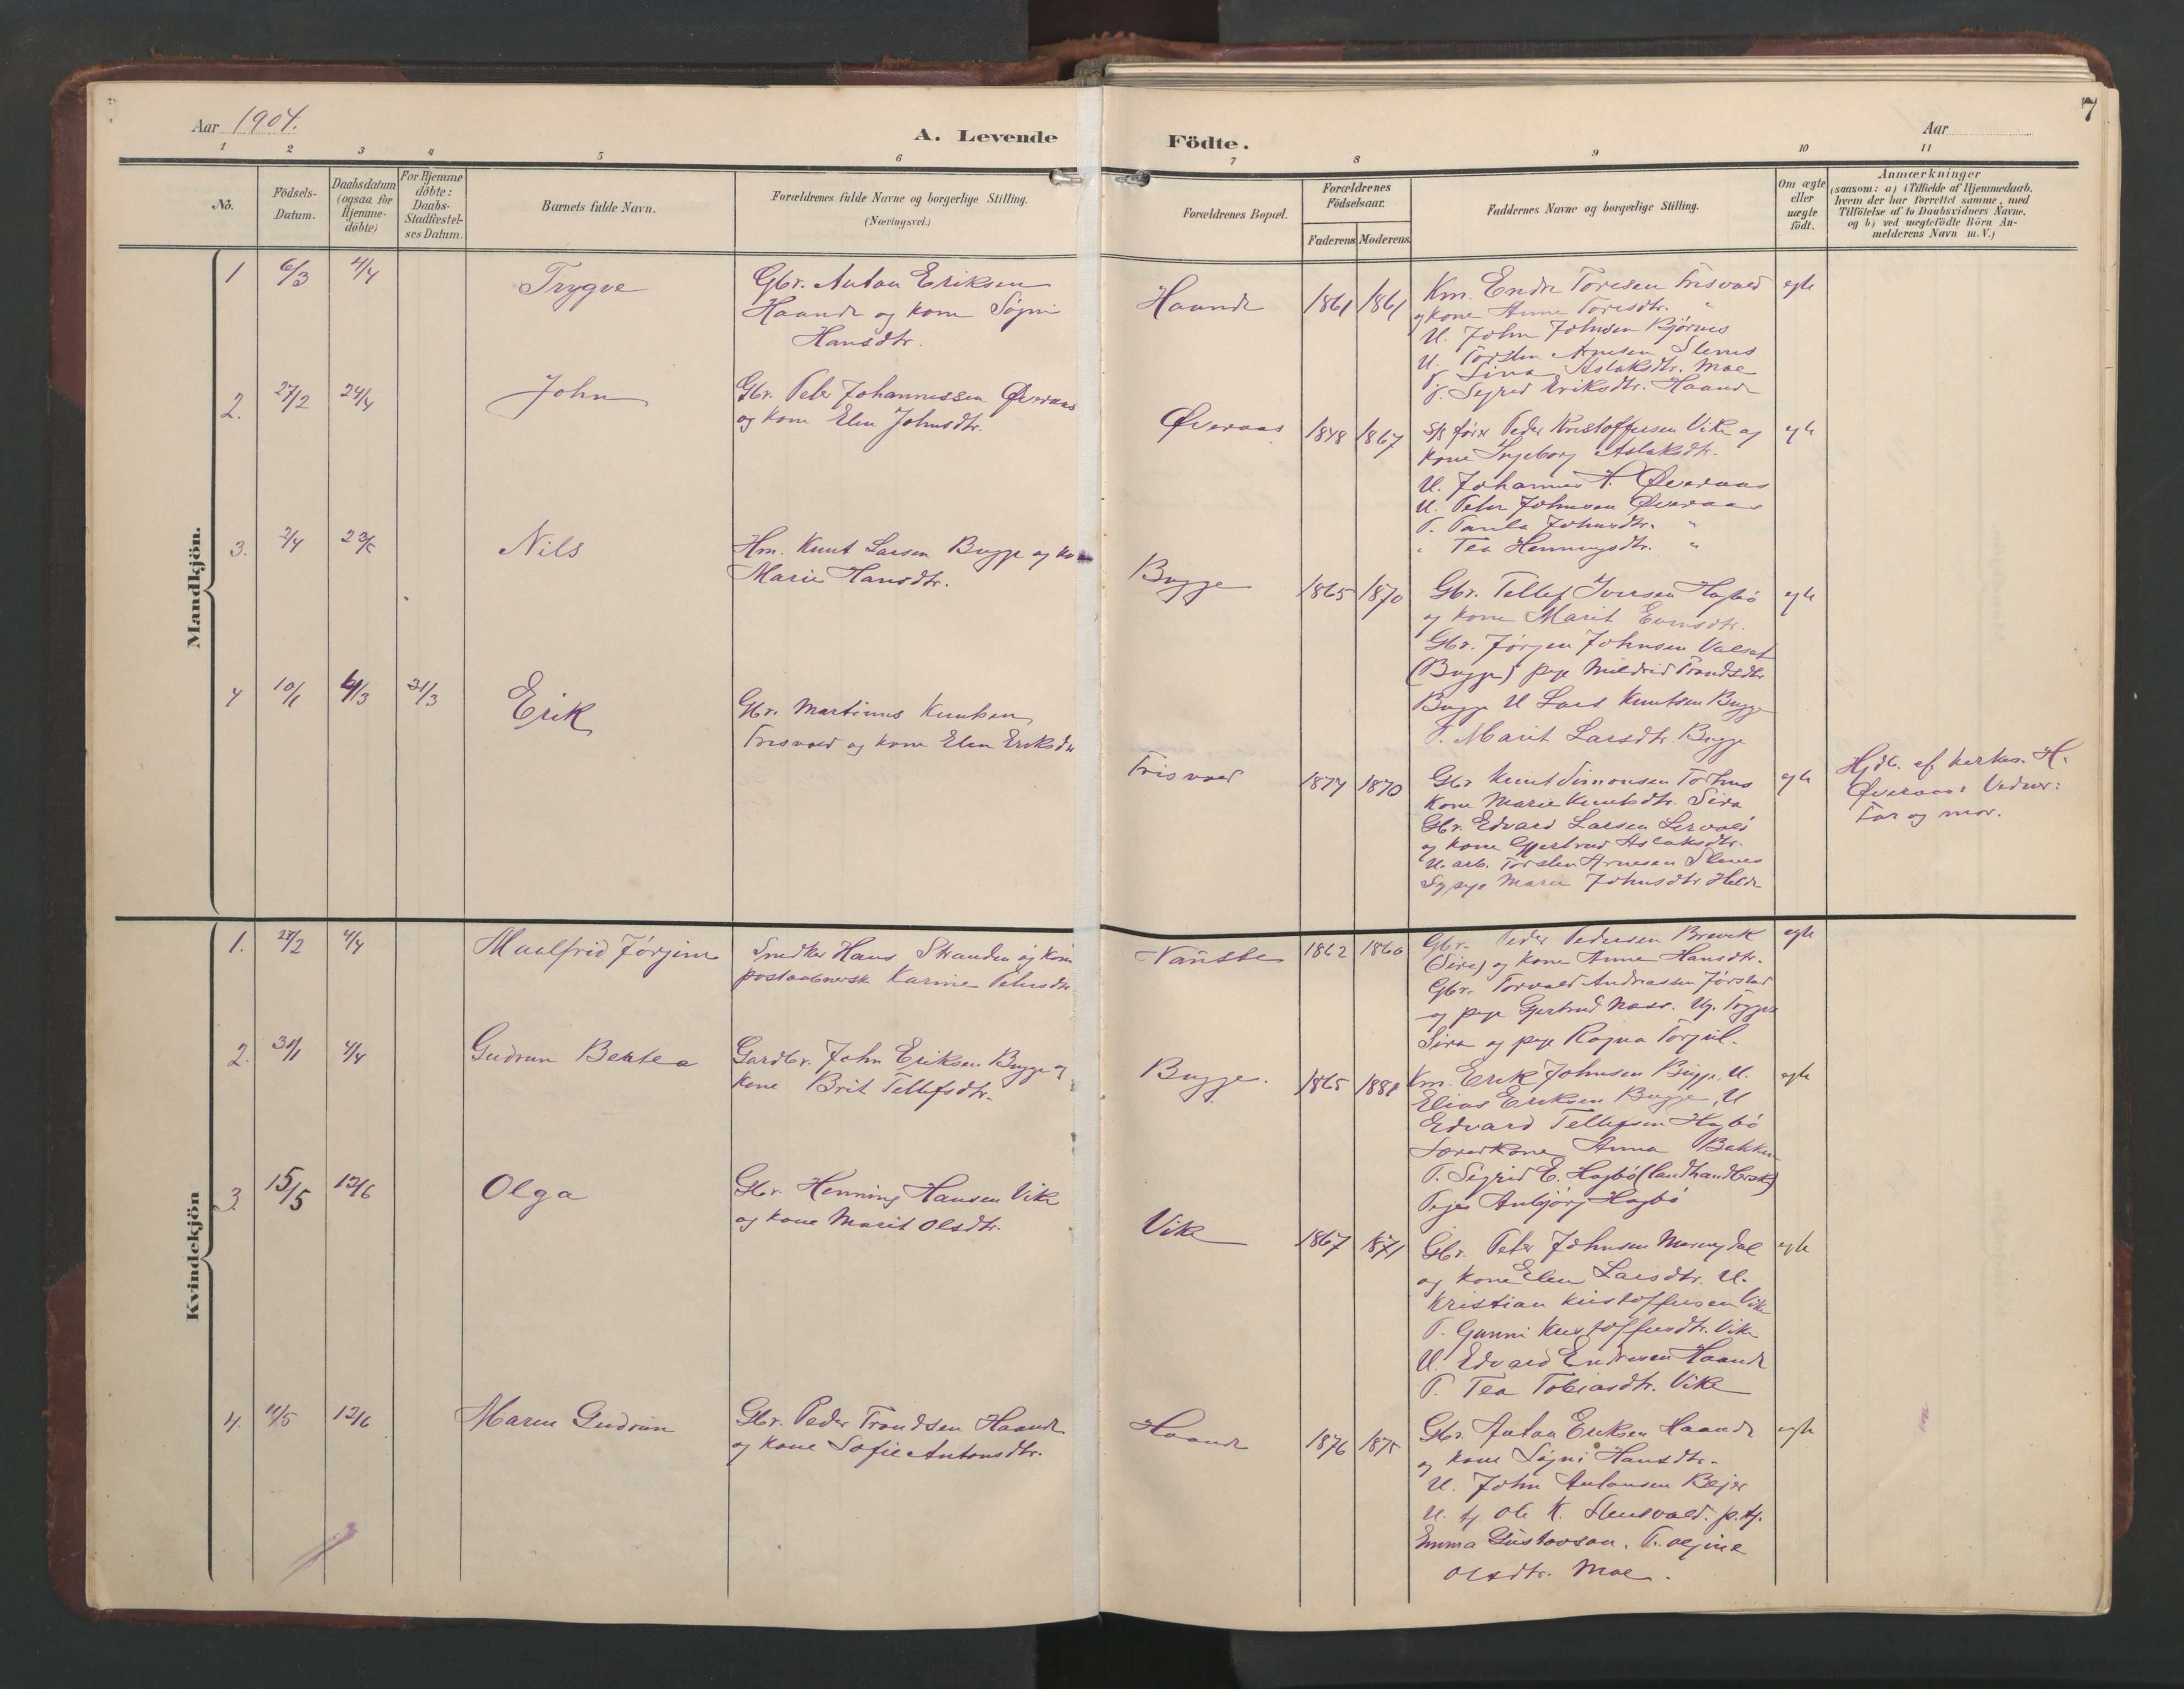 Aar 1904.
A. Levende
Födte.
Aar
7
1 2 3 4 5 6 7 8 9 10 11
No.
Födsels-
Datum.
Daabsdatum
(ogsaa for
Hjemme-
döbte)
For Hjemme
döbte:
Daabs-
Stadfæstel-
ses Datum.
Barnets fulde Navn.
Forældrenes fulde Navne og borgerlige Stilling.
(Næringsvei.)
Forældrenes Bopæl.
Forældrenes
Födselsaar.
Faderens Moderens
Faddernes Navne og borgerlige Stilling.
Om ægte
eller
uægte
födt.
Anmærkninger
(saasom: a) i Tilfælde af Hjemmedaab,
hvem der har forrettet samme, med
Tilföielse af to Daabsvidners Navne,
og b) ved uægtefödte Börn An-
melderens Navn m. V.)
Mandkjön.
1 6/3 4/4 Trygve
Gbr. Anton Eriksen
Haande og kone Søgni
Hansdtr.
Haande 1861 1861
Km. Endre Toresen Frisvold
og kone Anne Toresdtr. "
U. John Johnsen Bjørnes
U. Torsten Arnesen Slenes
P. Lina Aslaksdtr. Moe
P. Sigrid Eriksdtr. Haande
egte
2. 27/2 24/4 John
Gbr. Peter Johannessen Øveraas
og kone Elen Johnsdtr.
Øveraas 1848 1867
Peder Kristoffersen Vike og
kone Ingeborg Aslaksdtr.
U. Johannes P. Øveraas
U. Peter Johnsen Øveraas
P. Paula Johnsdtr. "
" Tea Henningsdtr. "
egte
3. 2/4 23/5 Nils
Hm. Knut Larsen Bugge og ko
Marie Hansdtr.
Bugge 1865 1870
Gbr. Tellef Iversen Hagbø
og kone Marit Evensdtr.
Gbr. Jørgen Johnsen Valset
(Bugge) pige Mildrid Trondsdtr.
Bugge U Lars Knutsen Bugge
P. Marit Larsdtr. Bugge
egte
4 10/1 4/3 31/3 Erik
Gbr. Martinus Knutsen
Frisvold og kone Elen Eriksdtr
Frisvold 1877 1870
Gbr Knut Simonsen Torhus
kone Marie Knutsdtr. Sira
Gbr. Edvard Larsen Lervold
og kone Gjertrud Aslaksdtr.
U. arb. Torsten Arnesen Slenes
Sypige Maren Johnsdtr Helde
egte
Hjdb. af kirkes. H.
Øveraas: Vidner:
Far og mor.
Kvindekjön
1. 27/2 4/4 Maalfrid Jørgine
Snedker Hans Stranden og kone
postaabnerske Karine Petersdtr
Nauste 1862 1860
Gbr. Peder Pedersen Bravik
(Sira) og kone Anne Hansdtr.
Gbr. Torvald Andreassen Jørstad
og pige Gjertrud Naas. Ug. Trygve
Sira og pige Ragna Torjul.
egte
2. 31/1 4/4 Gudrun Bertea
Gardbr. John Eriksen Bugge og
kone Brit Tellefsdtr.
Bugge. 1865 1881
Km. Erik Johnsen Bugge, U.
Elias Eriksen Bugge, U
Edvard Tellefsen Hagbø
Anna Bakken
P. Sigrid E. Hagbø (landhandlerske)
Pige Anbjørg Hagbø
egte
3. 15/5 12/6 Olga
Gbr. Henning Hansen Vike
og kone Marit Olsdtr.
Vike 1867 1871
Gbr. Peter Johnsen Meringdal
og kone Elen Larsdtr. U.
Kristian Kristoffersen Vike
P. Gunni Kristoffersdtr. Vike
U. Edvard Endresen Haande
P. Tea Tobiasdtr. Vike
egte
4. 11/5 12/6 Maren Gudrun
Gbr. Peder Trondsen Haande
og kone Sofie Antonsdtr.
Haande 1876 1875
Gbr. Anton Eriksen Haande
og kone Søgni Hansdtr.
U. John Antonsen Bejer
U. tj Ole K. Stensvold. p. tj.
Emma Gustavson, P. Oljine
Olsdtr. Moe.
egte